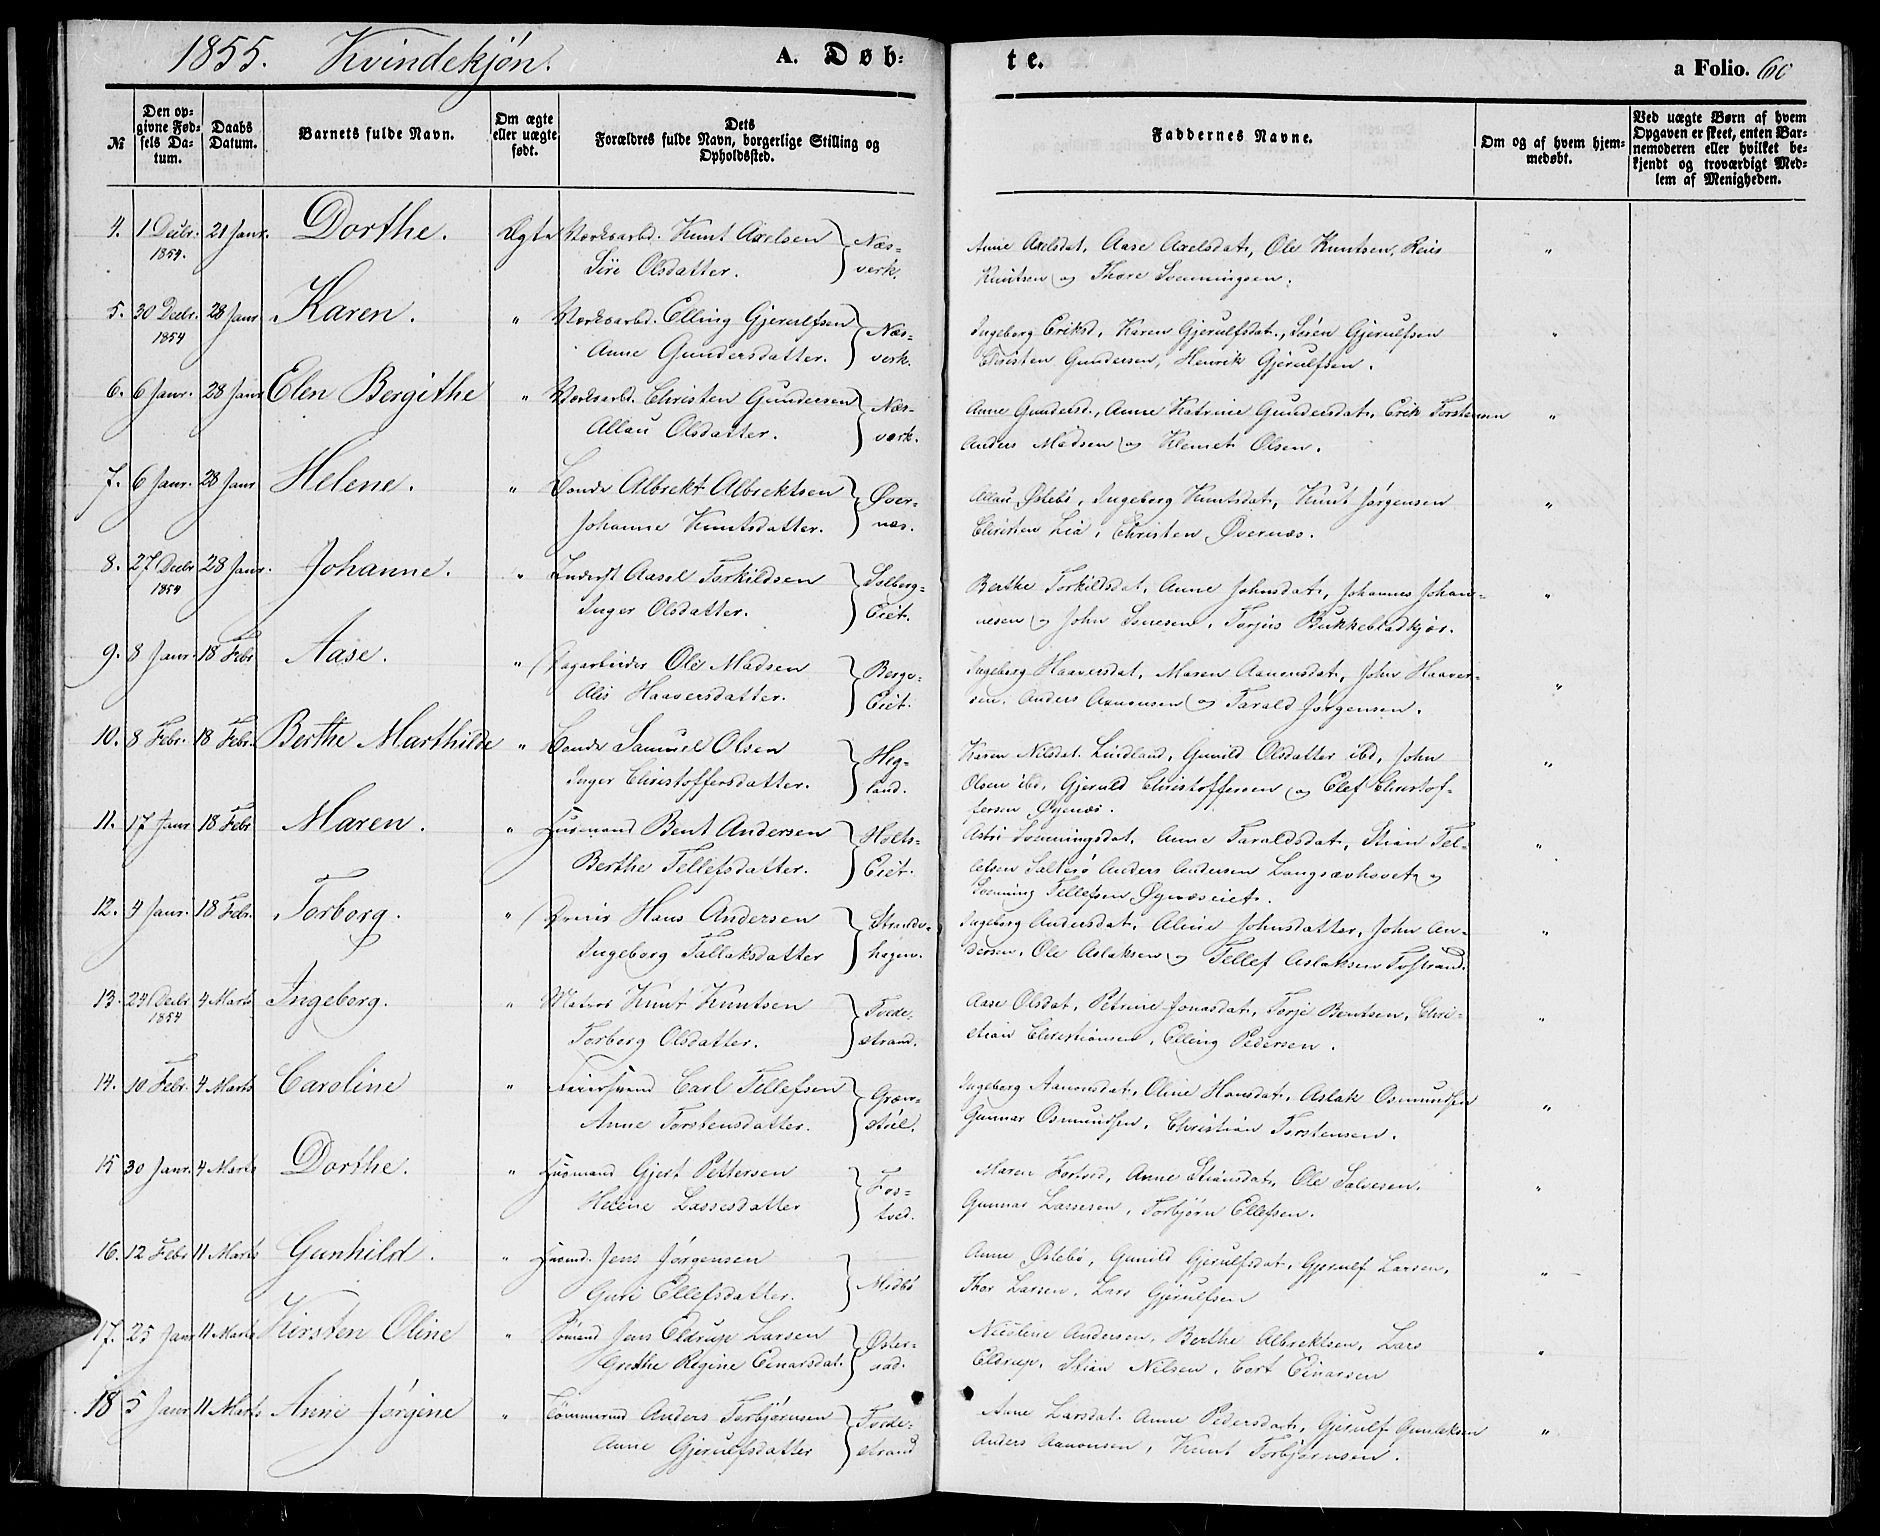 1855. Kvindekjön.
A. Døb-
te.
a Folio. 60
№
Den opgivne Fødsels Datum.
Daabs Datum.
Barnets fulde Navn.
Om ægte eller uægte født.
Dets Forældres fulde Navn, borgerlige Stilling og Opholdssted.
Faddernes Navne.
Om og af hvem hjemmedøbt.
Ved uægte Børn af hvem Opgaven er skeet, enten Barnemoderen eller hvilket bekjendt og troværdigt Medlem af Menigheden.
4. 1 Decbr. 1854. 21 Janr. Dorthe. Ægte Værksarbd. Knut Axelsen Næs-
Siri Olsdatter. verk.
Anne Axelsdat, Aase Axelsdat, Ole Knutsen, Reier "
Knutsen og Thore Svenningsen.
5. 30 Decbr. 1854 28 Janr Karen. " Værksarbd. Elling Gjerulfsen Næs-
Anne Gundersdatter. verk.
Ingeborg Eriksd, Karen Gjerulfsdat, Sören Gjerulfsen "
Christen Gundersen, Henrik Gjerulfsen.
6. 6 Janr. 28 Janr Elen Bergithe " Værksarbd. Christen Gundersen Næs-
Allau Olsdatter. værk.
Anne Gundersd., Anne Katrine Gundersdat, Erik Torstensen "
Anders Madsen og Klemet Olsen.
7. 6 Janr. 28 Janr Helene. " Bonde Albrekt Albrektsen Øver-
Johanne Knutsdatter. næs.
Allau Østebö, Ingeborg Knutsdat, Knut Jörgensen "
Christen Lia, Christen Øvernæs.
8. 27 Decbr 1854 28 Janr. Johanne. " Inderst Aasel Torkildsen Solberg-
Inger Olsdatter. Eiet.
Berthe Torkildsdat, Anne Johnsdat, Johannes Johan- "
nesen og John, Torjus Bukkebladkjær.
9. 8 Janr. 18 Febr Aase. " Dagarbeider Ole Madsen Berge-
Alis Haaversdatter. Eiet.
Ingeborg Haaversdat, Maren Aanonsdat, John Haaver- "
sen, Anders Aanonsen og Tarald Jörgensen.
10. 8 Febr. 18 Febr. Berthe Marthilde " Bonde Samuel Olsen Heg-
Inger Christoffersdatter. land.
Karen Nilsdat. Lindland, Gunild Olsdatter ibd, John "
Olsen ibd, Gjeruld Christoffersen og Elef Christof-
fersen Øgenæs.
11. 17 Janr 18 Febr Maren. " Husmand Bent Andersen Holts-
Berthe Tellefsdatter. Eiet.
Astri Svenningsdat, Anne Taraldsdat, Stian Tel- "
lefsen Salterö Anders Andersen Langsævhovet og
Svenning Tellefsen Øgenæseiet.
12. 4 Janr. 18 Febr. Torborg. " Hans Andersen Strande-
Ingeborg Tallaksdatter hagen.
Ingeborg Andersdat, Aline Johnsdatter, John An- "
dersen, Ole Aslaksen og Tellef Aslaksen
13. 24 Decbr 1854 4 Marts Ingeborg. " Matros Knut Knutsen Tvede-
Torborg Olsdatter. strand.
Aase Olsdat, Petrine Jonasdat, Terje Bentsen, Chri- "
stian Christiansen, Elling Pedersen.
14. 10 Febr. 4 Marts Caroline " Carl Tellefsen Græn-
Anne Torstensdatter. stöl.
Ingeborg Aanonsdat, Oline Hansdat, Aslak Osmundsen "
Gunnar Osmundsen, Christian Torstensen.
15 30 Janr. 4 Marts Dorthe. " Husmand Gjert Pettersen Fos-
Helene Lassesdatter tved.
Maren Fostved, Anne Stiansdat, Ole Salvesen. "
Gunnar Lassesen, Torbjörn Ellefsen.
16. 12 Febr 11 Marts Gunhild. " Husmd. Jens Jörgensen Midbö
Guri Ellefsdatter.
Anne Østebö, Gunild Gjerulfsdat, Gjerulf Larsen, "
Thor Larsen, Lars Gjerulfsen
17. 25 Janr 11 Marts Kirsten Oline " Sömand Jens Eldrup Larsen Øster-
Grethe Regine Einarsdat. aad.
Nicoline Andersen, Berthe Albrektsen, Lars "
Eldrup, Stian Nilsen, Cort Einarsen
18 5 Janr 11 Marts Anne Jörgine " Tömmermd Anders Torbjörnsen Tvede-
Anne Gjerulfsdatter strand
Anne Larsdat. Anne Pedersdat, Gjerulf Gunlaksen "
Anders Aanonsen, Knut Torbjörnsen.